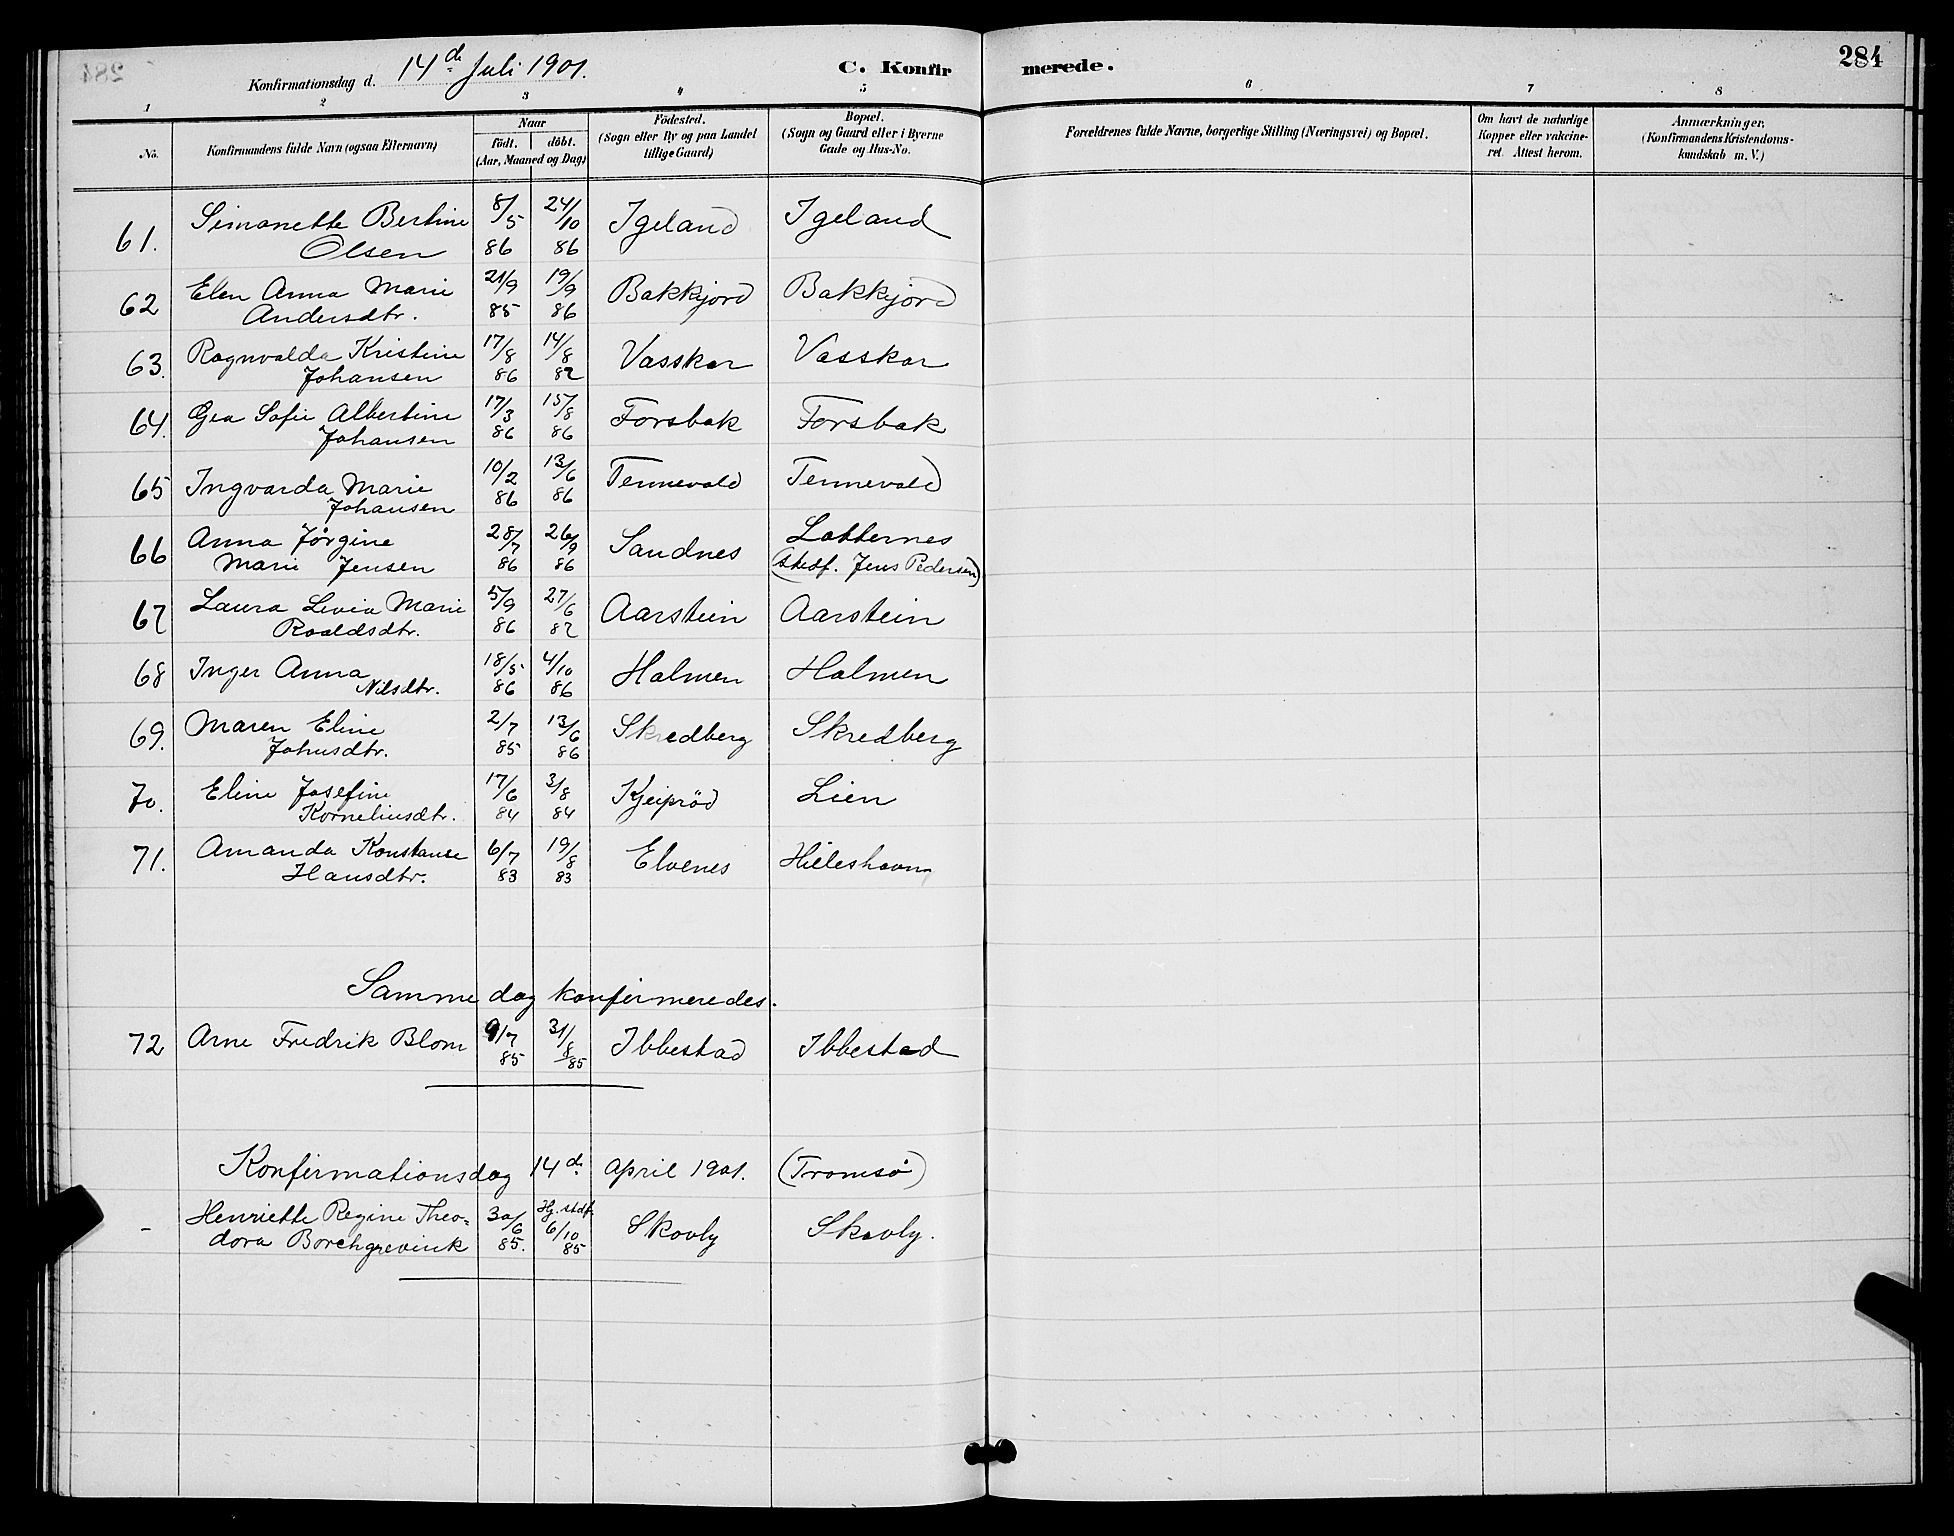 Konfirmationsdag d. 14de Juli 1901.
C. Konfirmerede.
284
1 2 3 4 5 6 7 8
No.
Konfirmandens fulde Navn (ogsaa Efternavn)
Naar
födt. döbt.
(Aar, Maaned og Dag)
Födested.
(Sogn eller By og paa Landet
tillige Gaard)
Bopæl.
(Sogn og Gaard eller i Byerne
Gade og Hus-No.
Forældrenes fulde Navne, borgerlige Stilling (Næringsvei) og Bopæl.
Om havt de naturlige
Kopper eller vakcine-
ret. Attest herom.
Anmærkninger,
(Konfirmandens Kristendoms-
kundskab m. V.)
61. Simonette Bertine 8/5 24/10 Igeland Igeland
Olsen 86 86
62 Elen Anna Marie 21/9 19/9 Bakkjord Bakkjord
Andersdtr. 85 86
63. Ragnvalda Kristine 17/8 14/8 Vasskar Vasskar
Johansen 86 87
64. Gea Sofie Albertine 17/3 15/8 Forsbak Forsbak
Johansen 86 86
65 Ingvarda Marie 10/2 13/6 Tennevold Tennevold
Johansen 86 86
66 Anna Jørgine 28/7 26/9 Sandnes Lotternes
Marie Jensen 86 86 (Stedf. Jens Pedersen)
67 Laura Livia Marie 5/9 27/6 Aarstein Aarstein
Roaldsdtr. 86 87
68 Inger Anna 18/5 4/10 Holmen Holmen
Nilsdtr. 86 86
69. Maren Eline 2/7 13/6 Skredberg Skredberg
Johnsdtr. 85 86
70. Eline Josefine 17/6 3/8 Kjeiprød Lien
Korneliusdtr. 84 84
71. Amanda Konstanse 6/7 19/8 Elvenes Hilleshavn
Hansdtr. 83 83
Samme dag konfirmeredes.
72 Arne Fredrik Blom 9/7 31/8 Ibbestad Ibbestad
85 85
Konfirmationsdag 14de April 1901. (Tromsø)
- Henriette Regine Theo- 30/6 Hj. stdf. Skovly Skovly.
dora Borchgrevink 85. 6/10 85